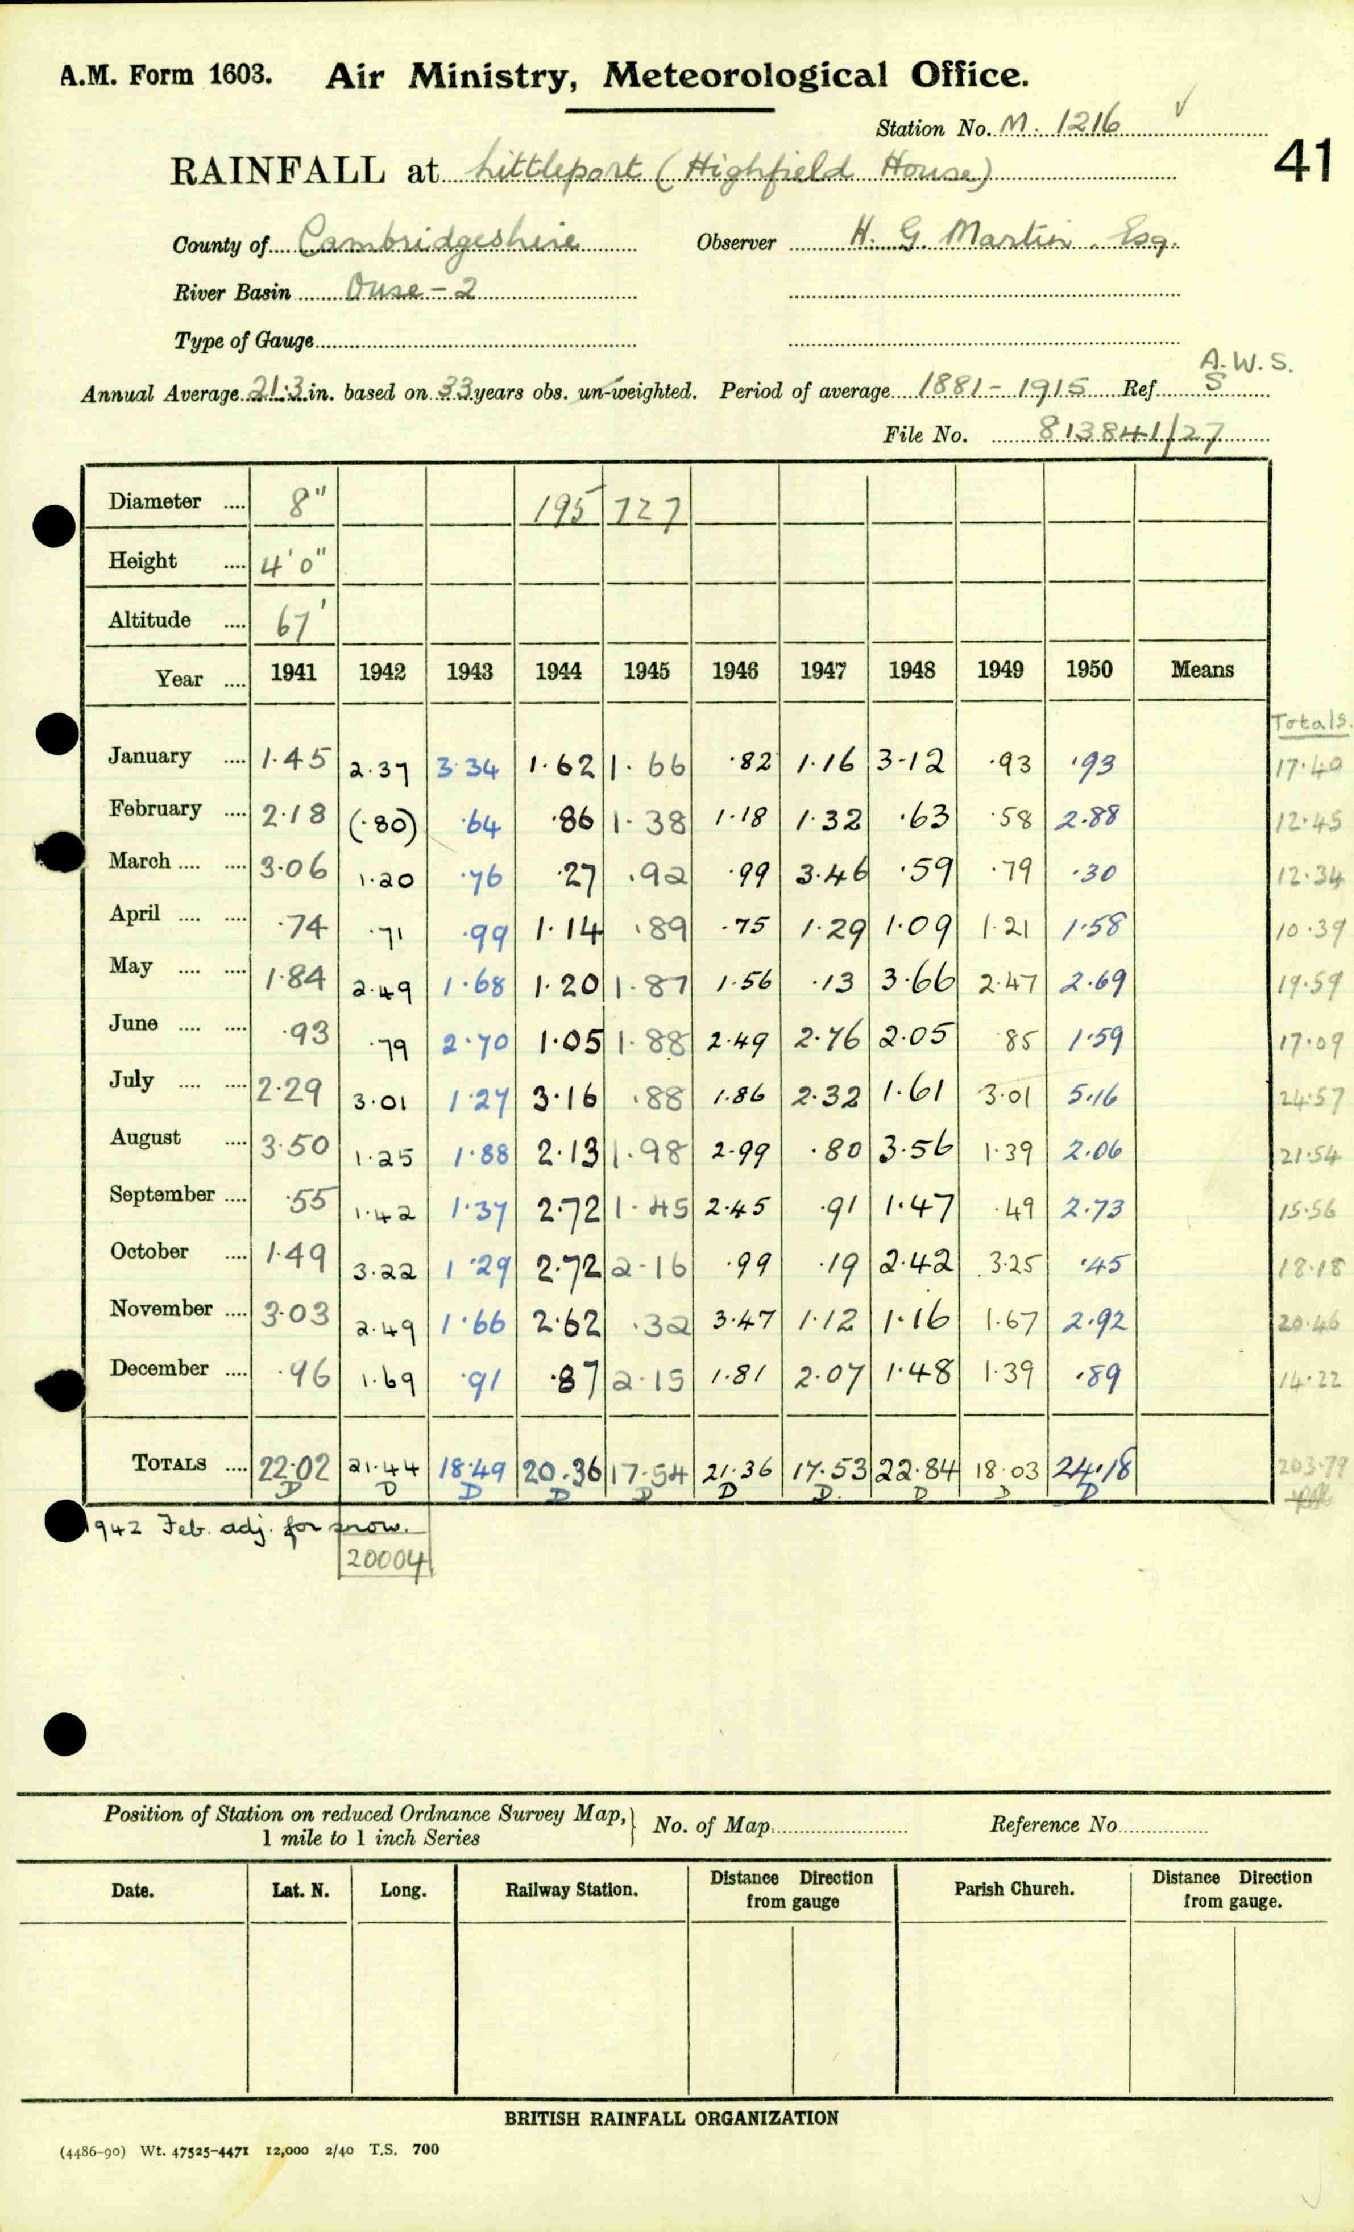 A.M. Form 1603. Air Ministry, Meteorological Office.
Station No. M. 1216 ✓
41
RAINFALL at Littleport (Highfield House)
County of Cambridgeshire Observer H. G. Martin Esq.
River Basin Ouse - 2
Type of Gauge
A.W.S.
Annual Average 21.3 in. based on 33 years obs. un-weighted. Period of average 1881 - 1915 Ref S
File No. 813841/27
Diameter .... 8" 195 727
Height .... 4' 0"
Altitude .... 67'
Year .... 1941 1942 1943 1944 1945 1946 1947 1948 1949 1950 Means
Totals.
January .... 1.45 2.37 3.34 1.62 1.66 .82 1.16 3.12 .93 .93 17.40
February .... 2.18 (.80) .64 .86 1.38 1.18 1.32 .63 .58 2.88 12.45
March .... .... 3.06 1.20 .76 .27 .92 .99 3.46 .59 .79 .30 12.34
April .... .... .74 .71 .99 1.14 .89 .75 1.29 1.09 1.21 1.58 10.39
May .... .... 1.84 2.49 1.68 1.20 1.87 1.56 .13 3.66 2.47 2.69 19.59
June .... .... .93 .79 2.70 1.05 1.88 2.49 2.76 2.05 .85 1.59 17.09
July .... .... 2.29 3.01 1.27 3.16 .88 1.86 2.32 1.61 3.01 5.16 24.57
August .... 3.50 1.25 1.88 2.13 1.98 2.99 .80 3.56 1.39 2.06 21.54
September .... .55 1.42 1.37 2.72 1.45 2.45 .91 1.47 .49 2.73 15.56
October .... 1.49 3.22 1.29 2.72 2.16 .99 .19 2.42 3.25 .45 18.18
November .... 3.03 2.49 1.66 2.62 .32 3.47 1.12 1.16 1.67 2.92 20.46
December .... .96 1.69 .91 .87 2.15 1.81 2.07 1.48 1.39 .89 14.22
TOTALS .... 22.02 21.44 18.49 20.36 17.54 21.36 17.53 22.84 18.03 24.18 203.79
D D D D D D D D D D
1942 Feb. adj. for snow.
20004
Position of Station on reduced Ordnance Survey Map, } No. of Map Reference No.
1 mile to 1 inch Series
Date. Lat. N. Long. Railway Station. Distance Direction from gauge Parish Church. Distance Direction from gauge.
BRITISH RAINFALL ORGANIZATION
(4486-90) Wt. 47525-4471 12,000 2/40 T.S. 700